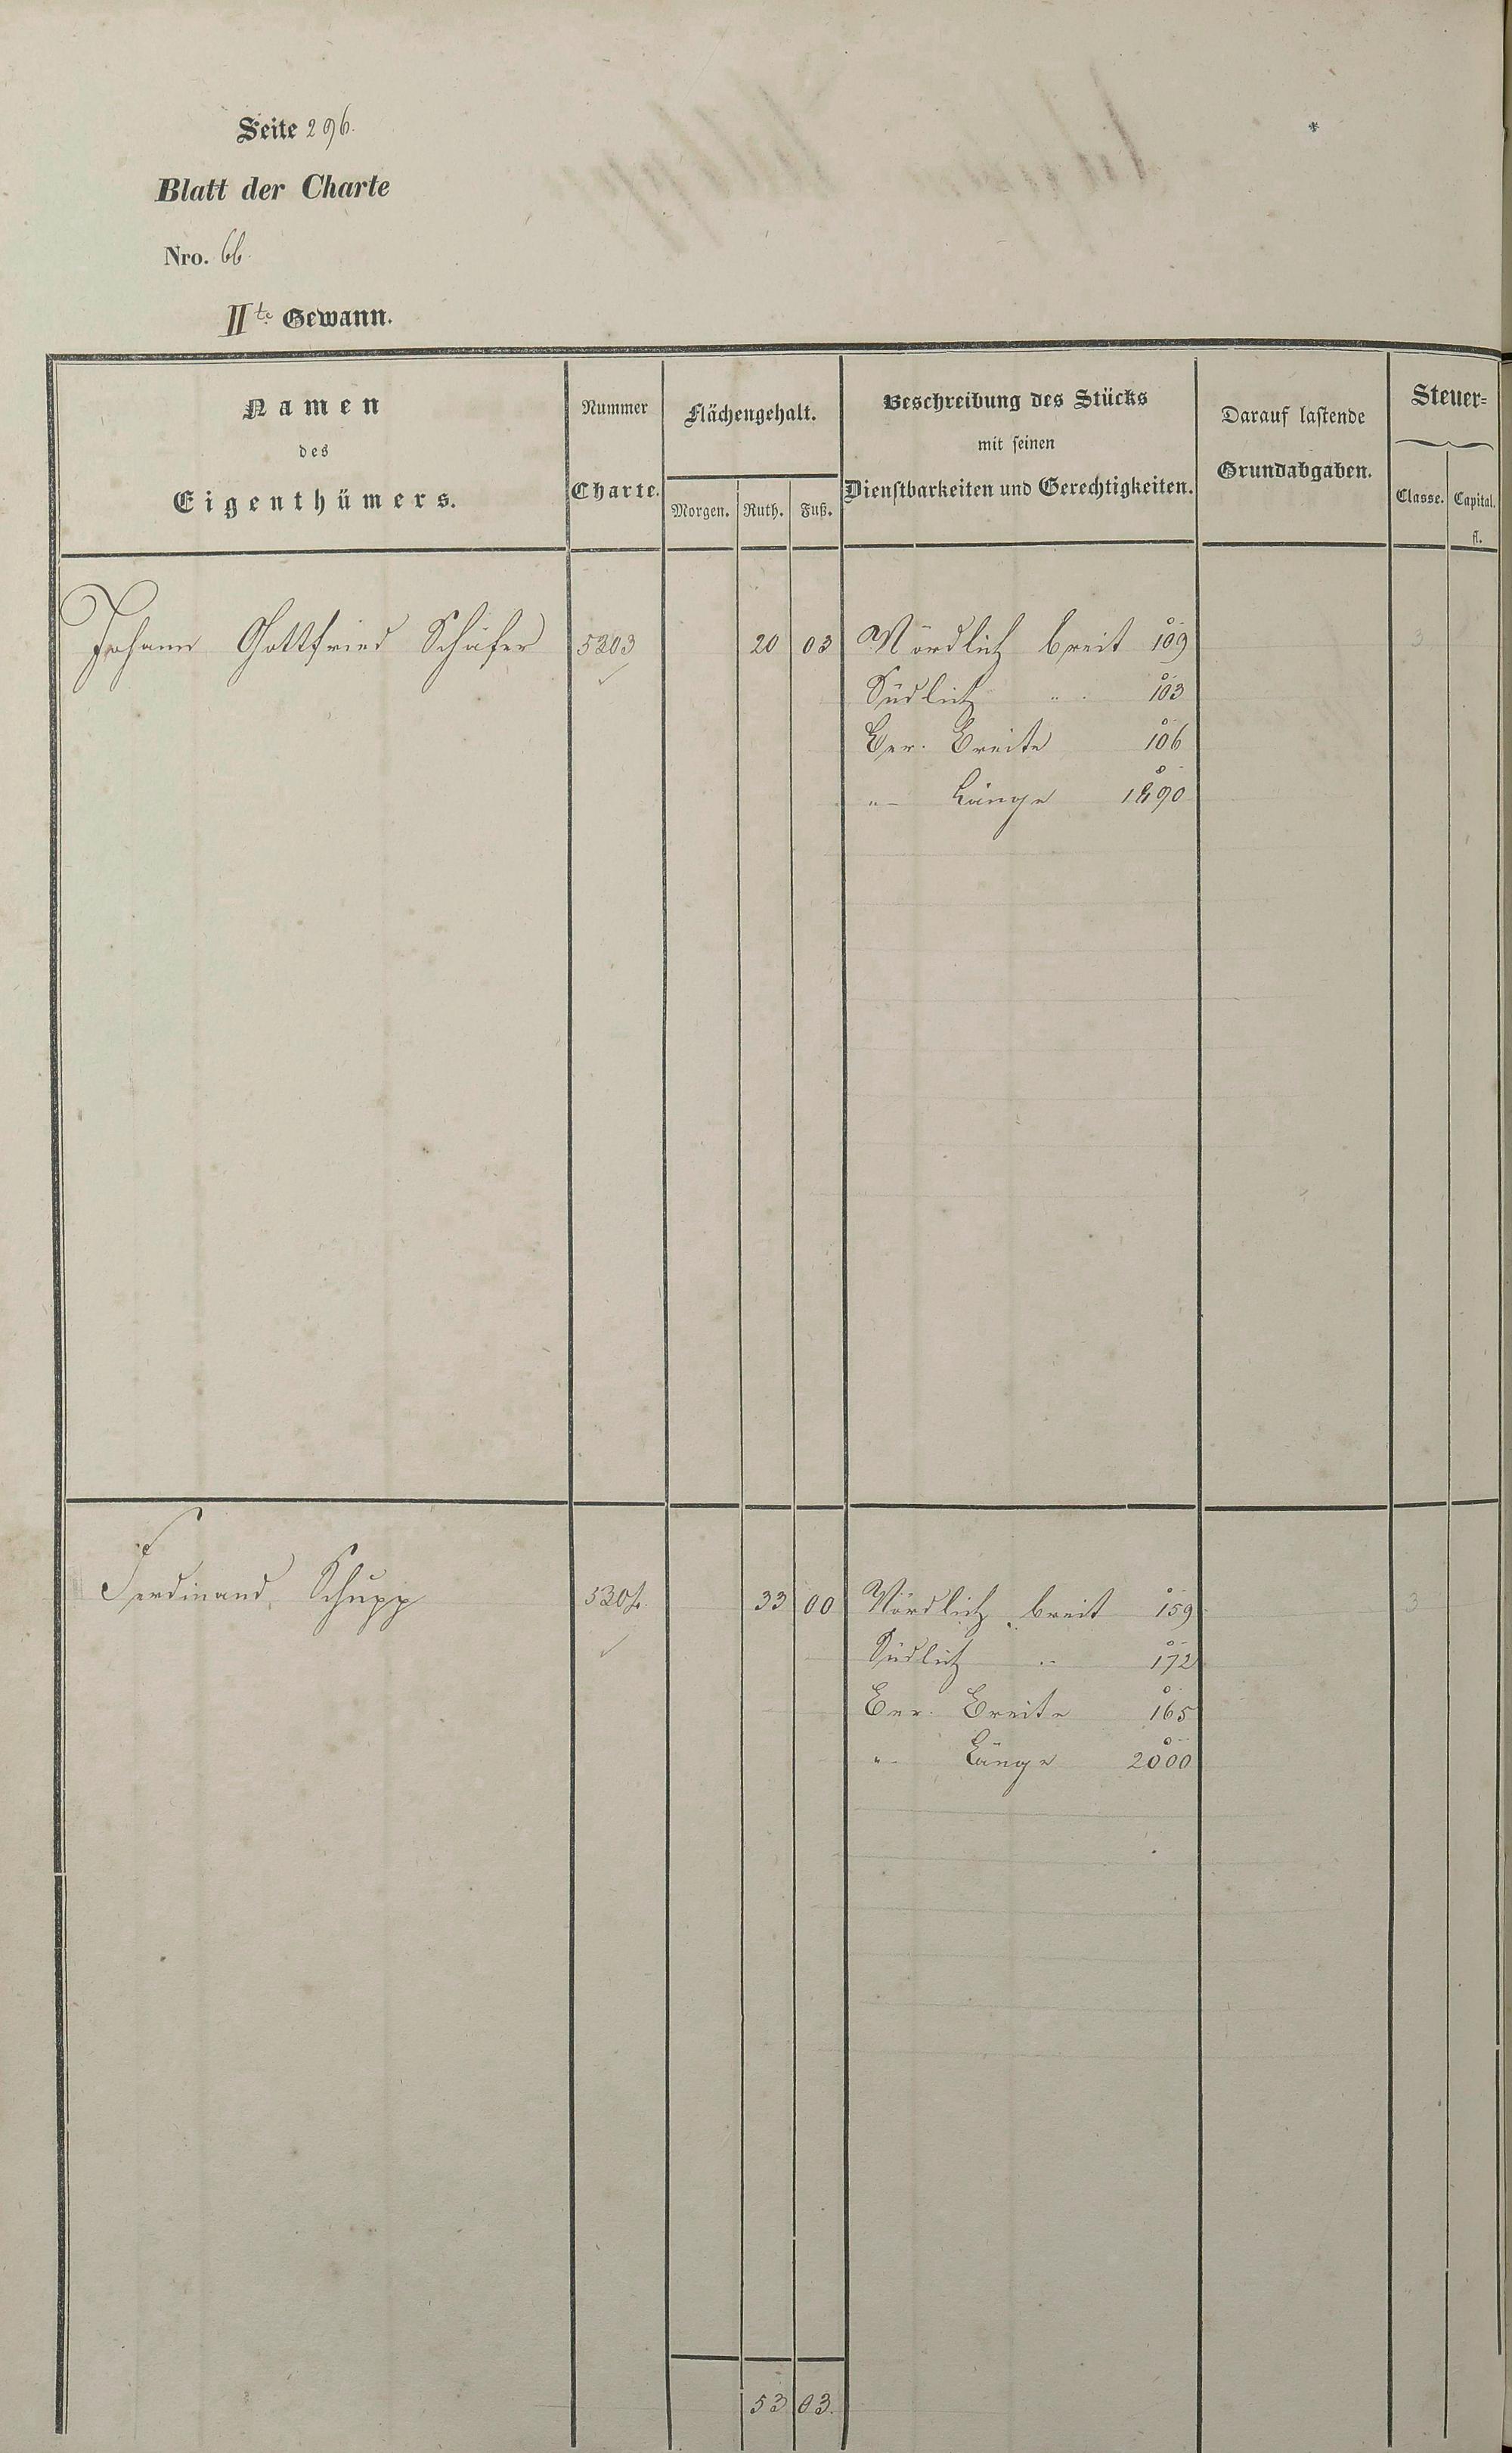 Seite 296.
Blatt der Charte
Nro. 66.
IIte Gewann.
Namen des Eigenthümers.
Nummer Charte.
Flächengehalt.
Morgen. Ruth. Fuß.
Beschreibung des Stücks mit seinen Dienstbarkeiten und Gerechtigkeiten.
Darauf lastende Grundabgaben.
Steuer=
Classe. Capital. fl.
Johann Gottfried Schäfer 5203 20 03 Nördlich breit 109 3
Südlich " 103
Ber. Breite 106
" Länge 1890
Ferdinand Schupp 5204. 33 00 Nördlich breit 159 3
Südlich " 172
Ber. Breite 165
" Länge 2000
53 03.